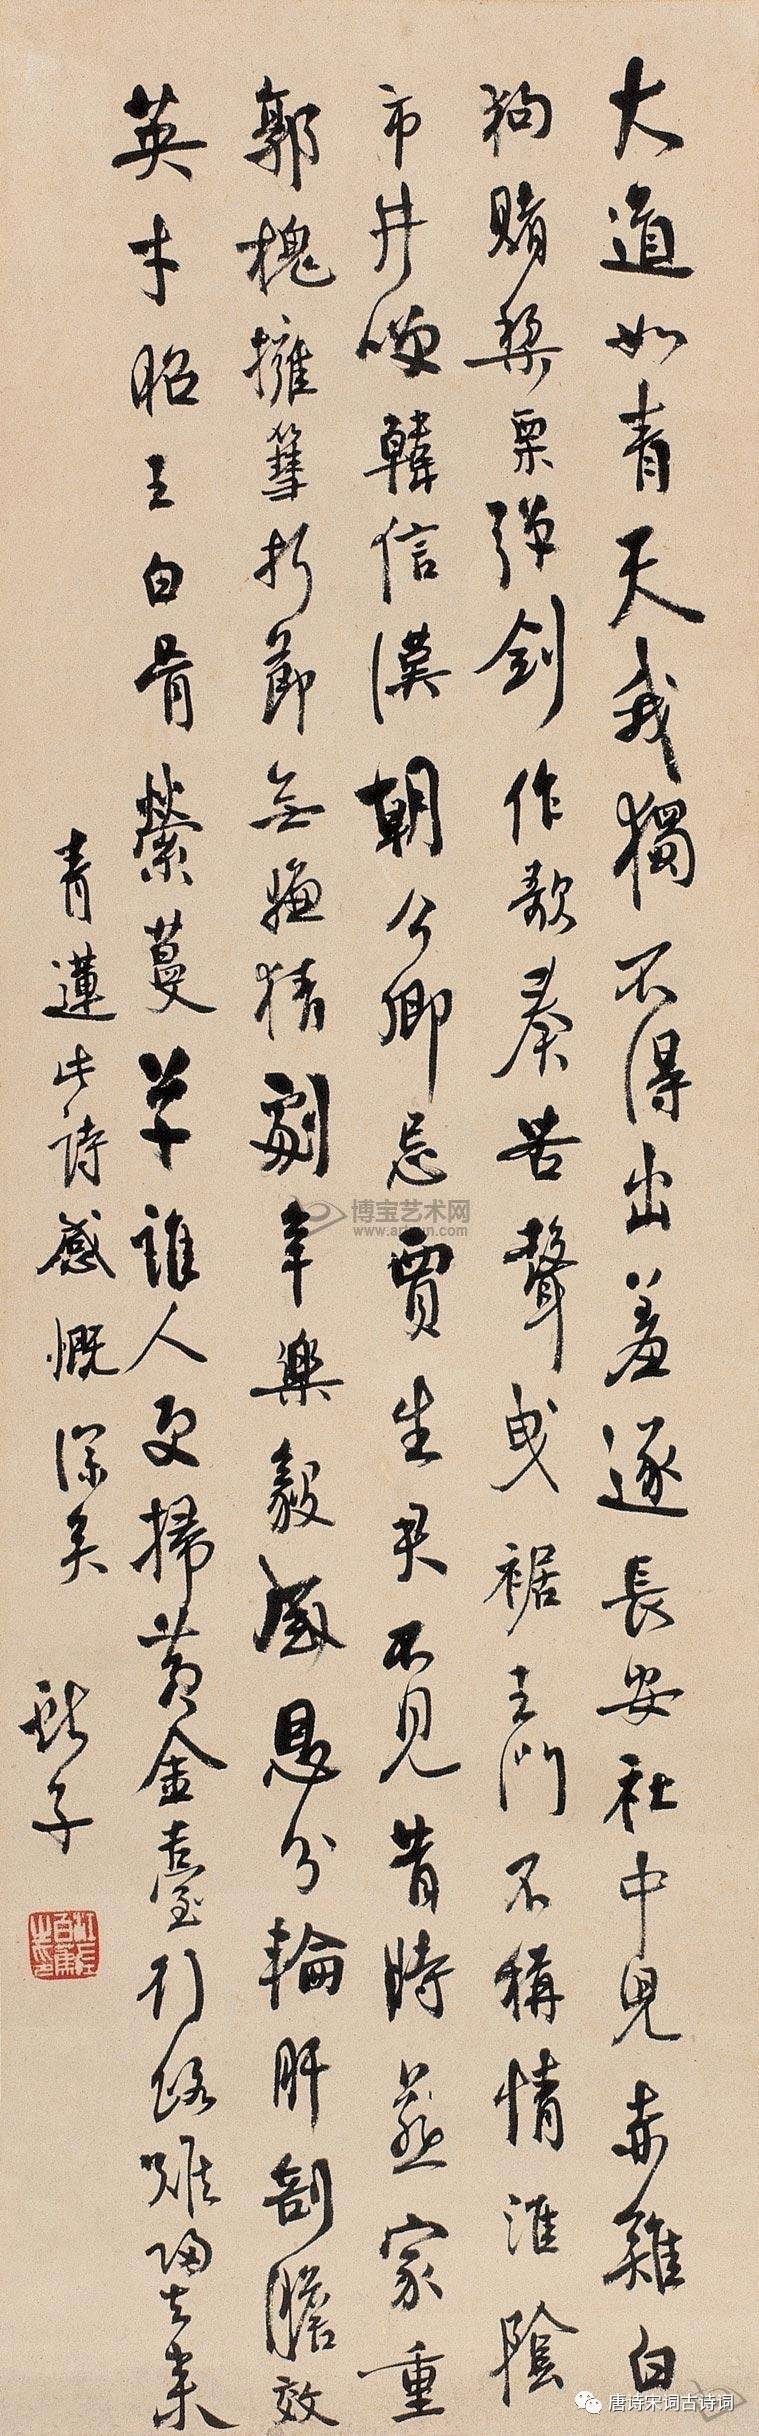 大道如青天我獨不得出羞逐長安社中兒赤雞白
狗賭梨栗彈劍作歌奏苦聲曳裾王門不稱情淮陰
市井咲韓信漢朝公卿忌賈生君不見昔時燕家重
郭槐擁篲折節無嫌猜劇辛樂毅感恩分輪肝剖膽效
英才昭王白骨縈蔓草誰人更掃黃金臺行路難歸去來
青蓮此詩感慨深矣
獻子
博宝艺术网
唐诗宋词古诗词